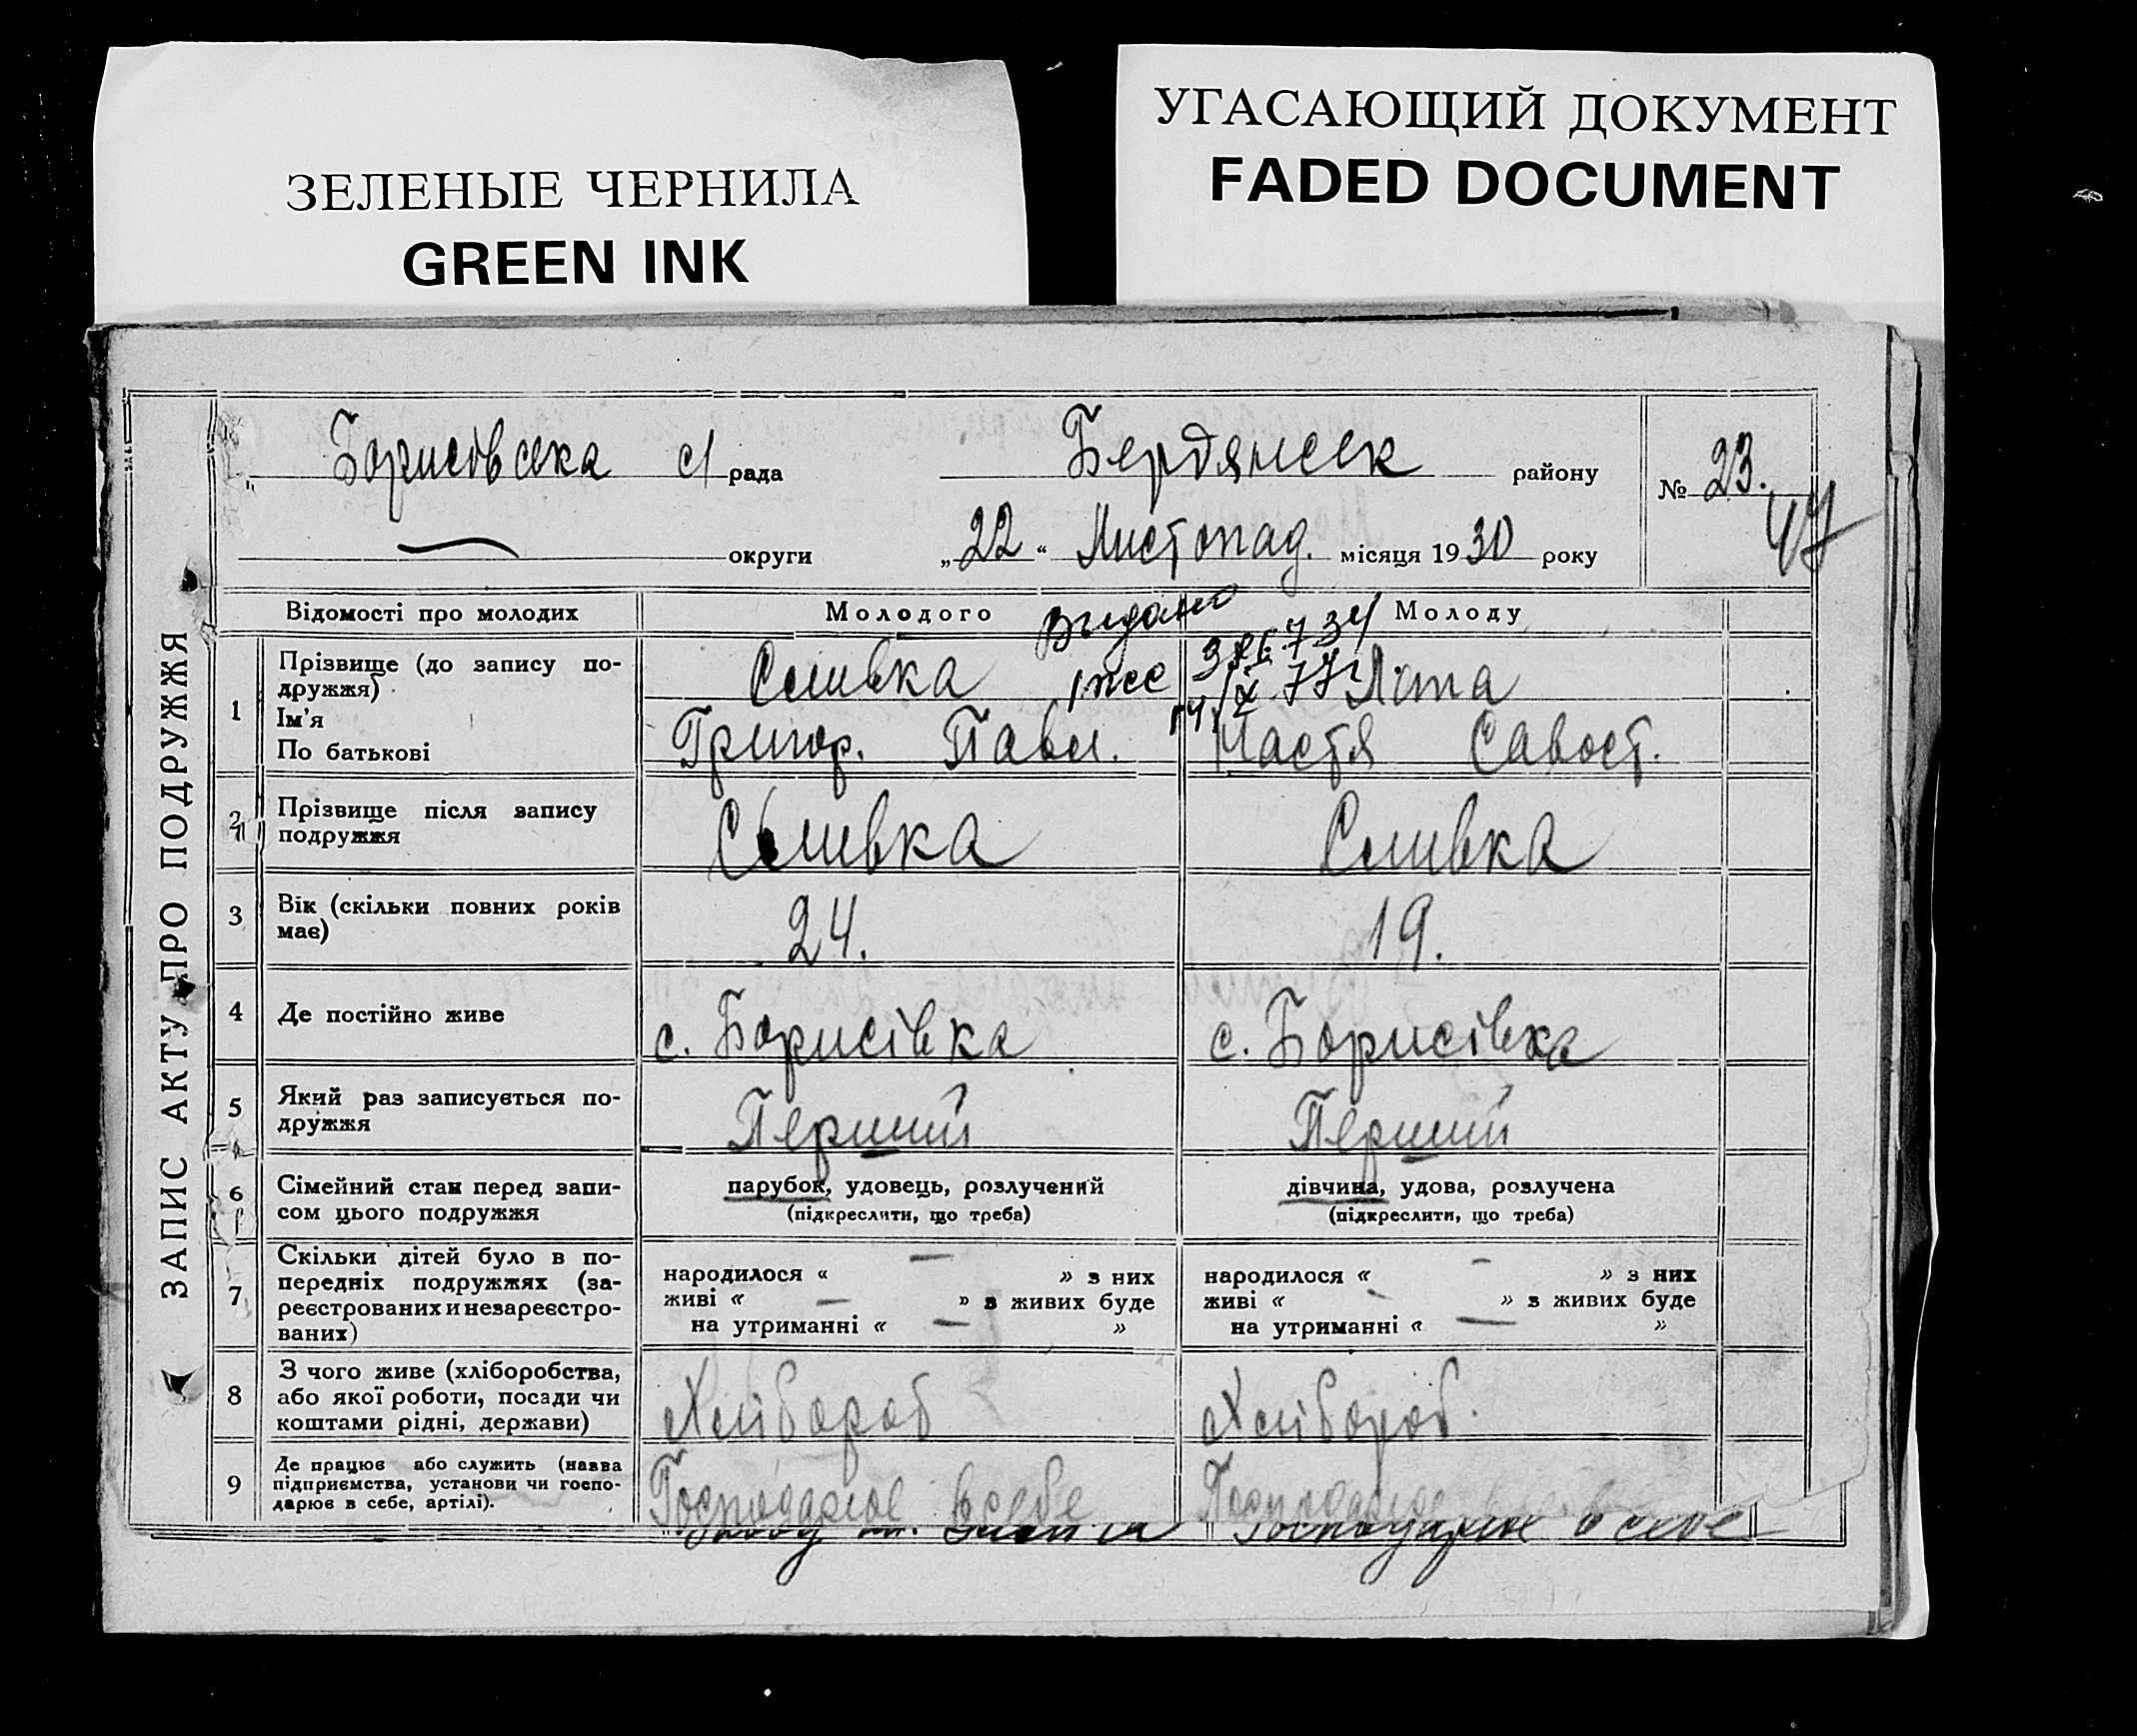 ЗЕЛЕНЫЕ ЧЕРНИЛА
GREEN INK
УГАСАЮЩИЙ ДОКУМЕНТ
FADED DOCUMENT
ЗАПИС АКТУ ПРО ПОДРУЖЖЯ
Борисовська с/рада Бердянськ району № 23.
47
округи „22“ Листопад. місяця 1930 року
Відомості про молодих Молодого Молоду
Видано
1 Прізвище (до запису по-
дружжя)
Сливка Лята
Ім'я
По батькові
Григор. Павл. Настя Савост.
2 Прізвище після запису
подружжя
Сливка Сливка
3 Вік (скільки повних років
має)
24. 19.
4 Де постійно живе с. Борисівка с. Борисівка
5 Який раз записується по-
дружжя
Перший Перший
6 Сімейний стан перед запи-
сом цього подружжя
парубок, удовець, розлучений
(підкреслити, що треба)
дівчина, удова, розлучена
(підкреслити, що треба)
7 Скільки дітей було в по-
передніх подружжях (за-
реєстрованих и незареєстро-
ваних)
народилося « — » з них
живі « — » з живих буде
на утриманні « — »
народилося « — » з них
живі « - » з живих буде
на утриманні « — »
8 З чого живе (хліборобства,
або якої роботи, посади чи
коштами рідні, держави)
Хлібороб Хлібороб.
9 Де працює або служить (назва
підприємства, установи чи госпо-
дарює в себе, артілі).
Господарює в себе Господарює
Господарює в себе